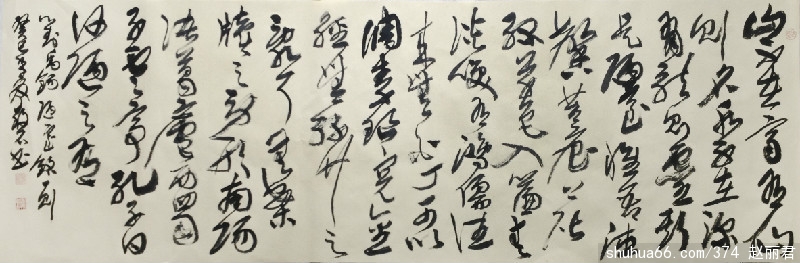 山不在高有仙
则名水不在深
有龙则灵斯
是陋室惟吾德
馨苔痕上阶
绿草色入帘青
谈笑有鸿儒往
来无白丁可以
调素琴阅金
经无丝竹之
乱耳无案
牍之劳形南阳
诸葛庐西蜀
子云亭孔子曰
何陋之有
刘禹锡陋室铭一则
癸巳年夏
shuhua66.com/374 赵丽君